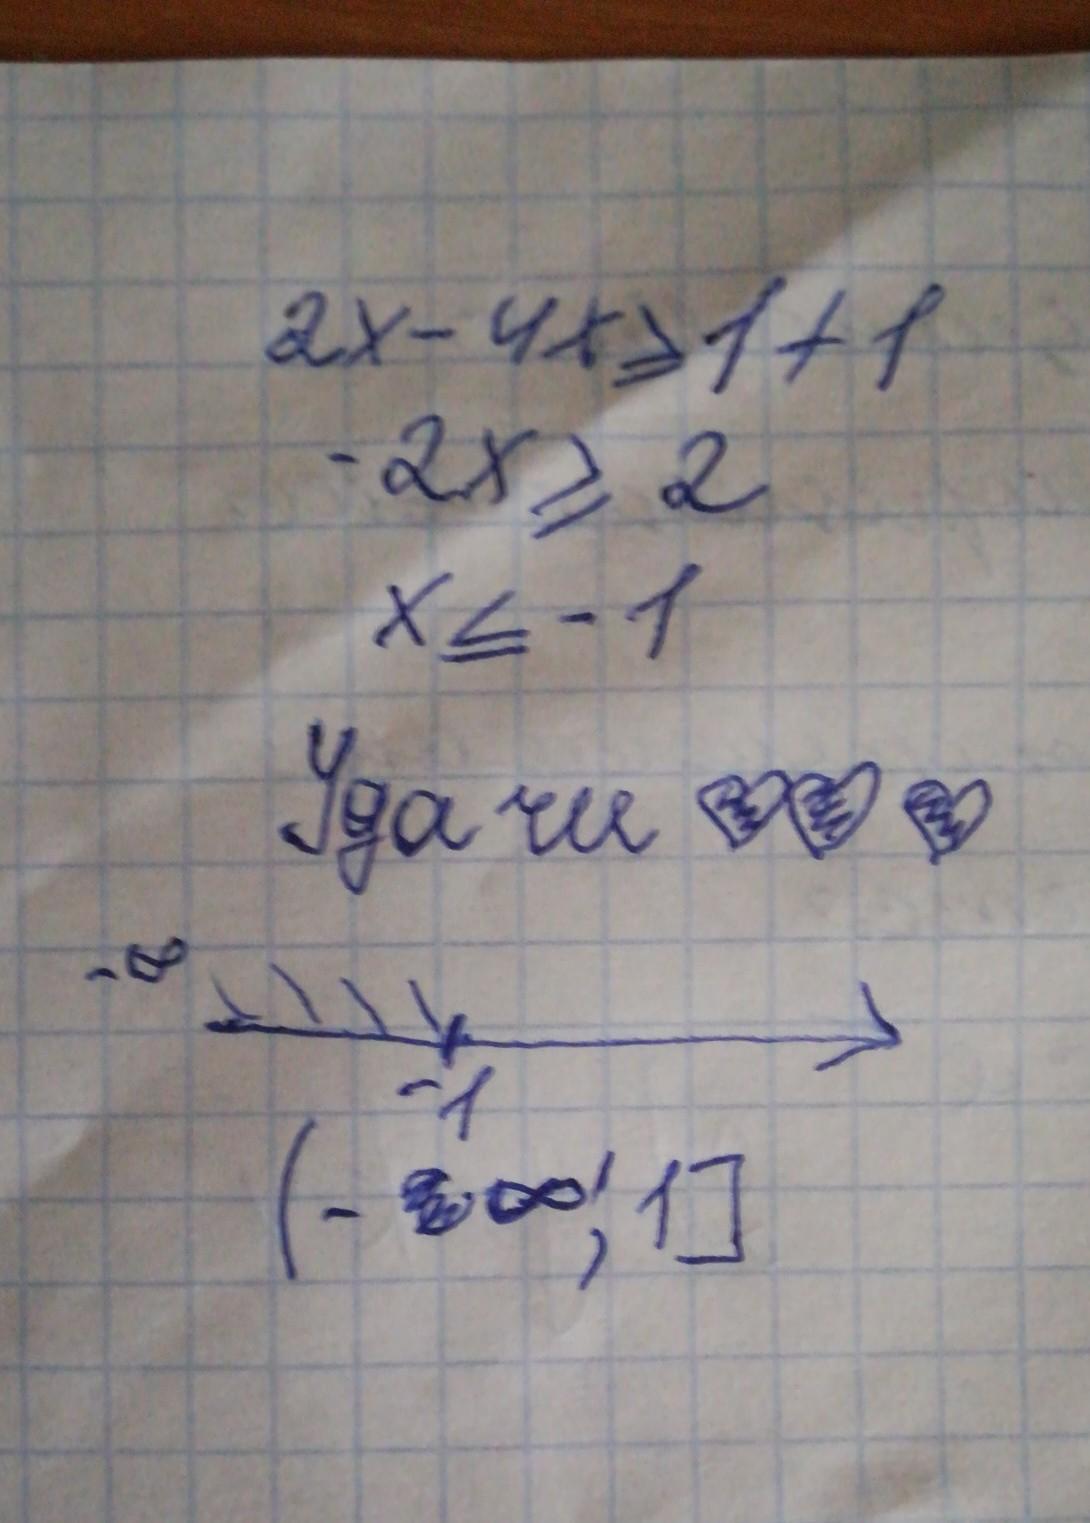 2x - 4x ⩾ 1 + 1
-2x ⩾ 2
x ≤ -1
Удачи
-∞
-1
(-∞; 1]